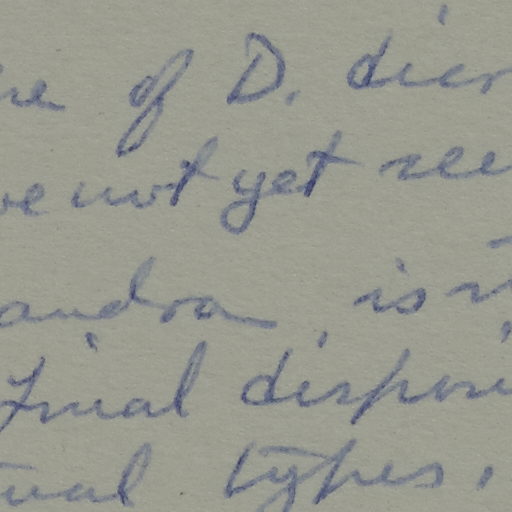 of D. dier
ve not yet see
andra is
final disposi
ual types,